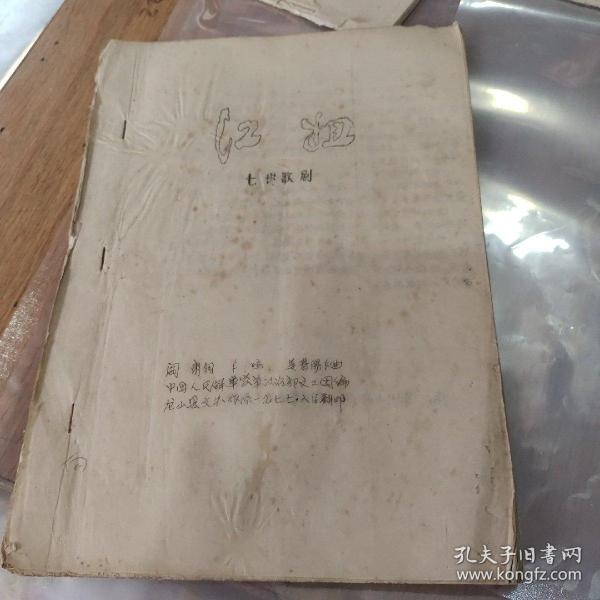 江姐
七場歌剧
阎肃词 羊鸣 姜春阳作曲
中国人民解放军空政治部文工团编
龙山县文 一九七七·六 翻印
孔夫子旧书网
www.kongfz.com